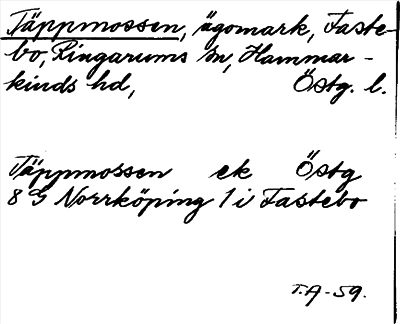 Täppmossen, ägomark, Faste-
bo, Ringarums sn, Hammar-
kinds hd, Östg. l.
Täppmossen ek Östg
8 G Norrköping 1 i Fastebo
T.A-59.